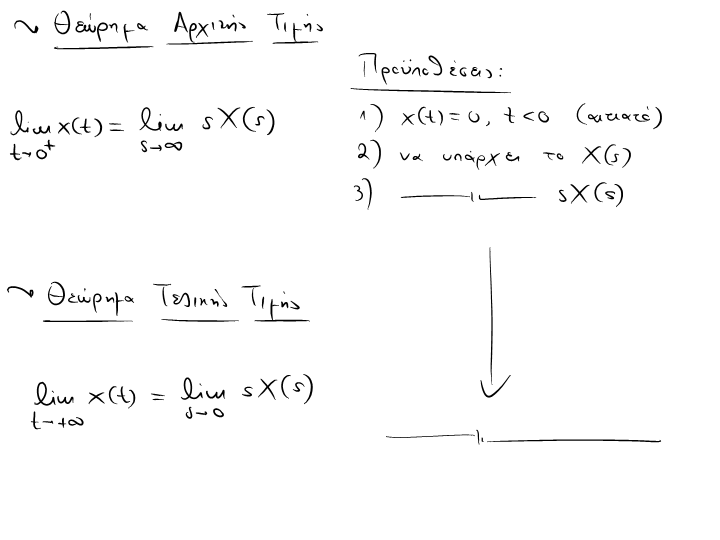 ~ Θεώρημα Αρχικής Τιμής
lim x(t) = lim sX(s)
t→0⁺ s→∞
Προϋποθέσεις:
1) x(t)=0, t<0 (αιτιατό)
2) να υπάρχει το X(s)
3) ——"—— sX(s)
~ Θεώρημα Τελικής Τιμής
lim x(t) = lim sX(s)
t→+∞ s→0
——"——